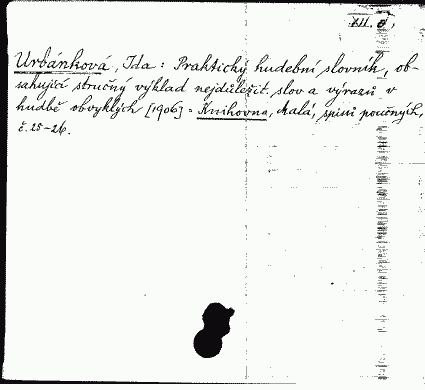 XII. d,
Urbánková, Ida: Praktický hudební slovník, ob-
sahující stručný výklad nejdůležit. slov a výrazů v
hudbě obvyklých [1906] = Knihovna, Malá, spisů poučných,
č. 25-26.